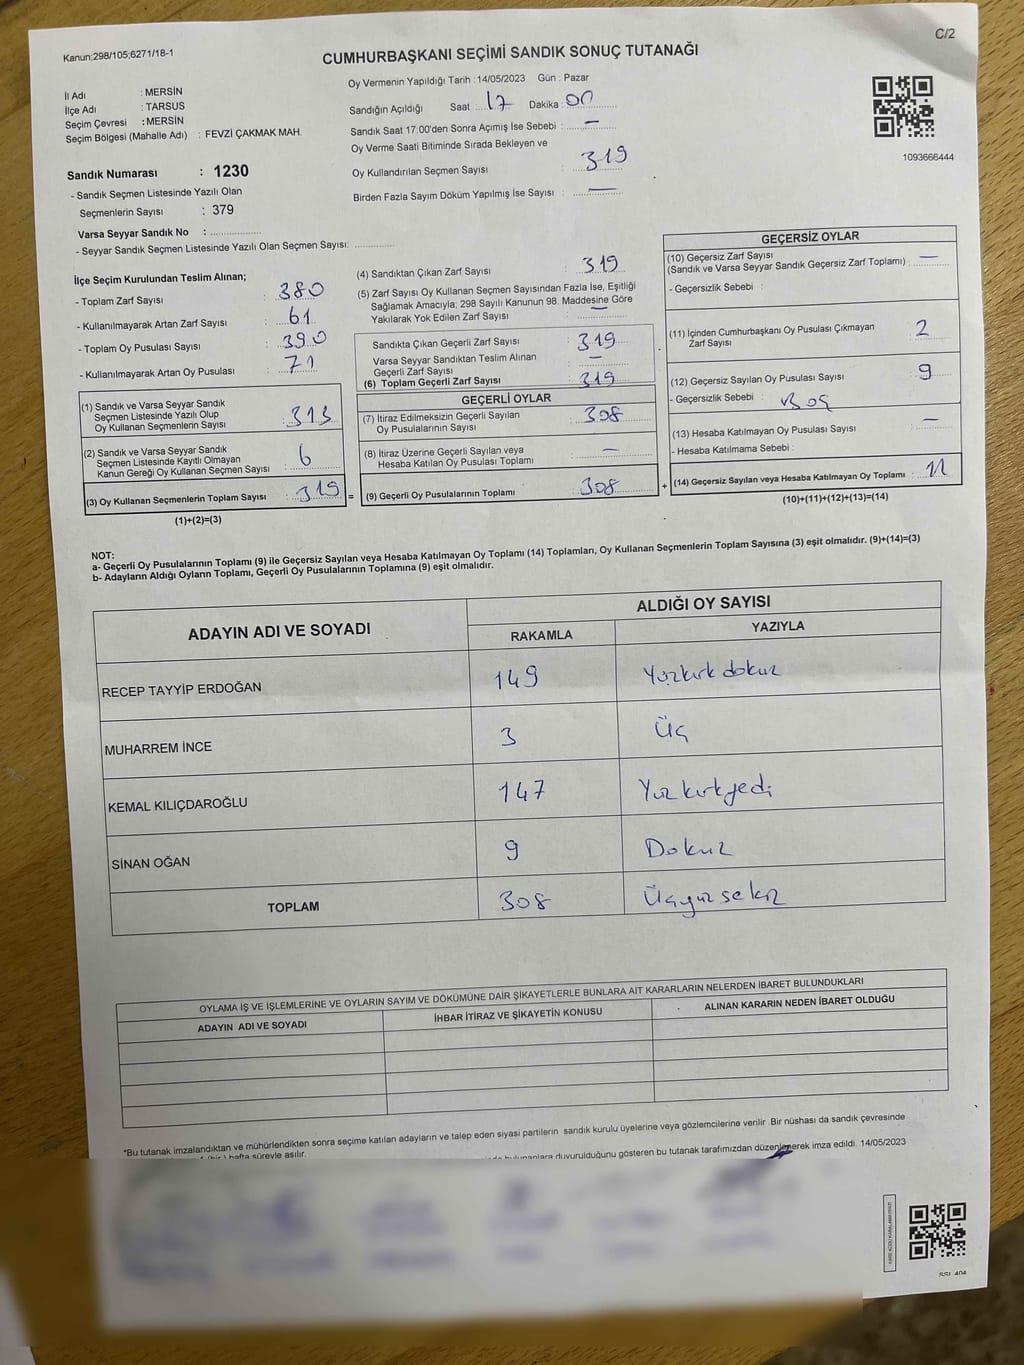 Kanun;298/105;6271/18-1
C/2
CUMHURBAŞKANI SEÇİMİ SANDIK SONUÇ TUTANAĞI
İl Adı : MERSİN
İlçe Adı : TARSUS
Seçim Çevresi : MERSİN
Seçim Bölgesi (Mahalle Adı) : FEVZİ ÇAKMAK MAH.
Oy Vermenin Yapıldığı Tarih : 14/05/2023 Gün : Pazar
Sandığın Açıldığı Saat 17 Dakika : 00
Sandık Saat 17:00'den Sonra Açımış İse Sebebi : —
Oy Verme Saati Bitiminde Sırada Bekleyen ve
Oy Kullandırılan Seçmen Sayısı : 319
Birden Fazla Sayım Döküm Yapılmış İse Sayısı : —
1093666444
Sandık Numarası : 1230
- Sandık Seçmen Listesinde Yazılı Olan
Seçmenlerin Sayısı : 379
Varsa Seyyar Sandık No :
- Seyyar Sandık Seçmen Listesinde Yazılı Olan Seçmen Sayısı:
İlçe Seçim Kurulundan Teslim Alınan;
- Toplam Zarf Sayısı : 380
- Kullanılmayarak Artan Zarf Sayısı : 61
- Toplam Oy Pusulası Sayısı : 390
- Kullanılmayarak Artan Oy Pusulası : 71
(1) Sandık ve Varsa Seyyar Sandık
Seçmen Listesinde Yazılı Olup
Oy Kullanan Seçmenlerin Sayısı : 313
(2) Sandık ve Varsa Seyyar Sandık
Seçmen Listesinde Kayıtlı Olmayan
Kanun Gereği Oy Kullanan Seçmen Sayısı : 6
(3) Oy Kullanan Seçmenlerin Toplam Sayısı : 319 =
(1)+(2)=(3)
(4) Sandıktan Çıkan Zarf Sayısı : 319
(5) Zarf Sayısı Oy Kullanan Seçmen Sayısından Fazla İse, Eşitliği
Sağlamak Amacıyla; 298 Sayılı Kanunun 98. Maddesine Göre
Yakılarak Yok Edilen Zarf Sayısı : —
Sandıkta Çıkan Geçerli Zarf Sayısı : 319
Varsa Seyyar Sandıktan Teslim Alınan
Geçerli Zarf Sayısı : —
(6) Toplam Geçerli Zarf Sayısı : 319
GEÇERLİ OYLAR
(7) İtiraz Edilmeksizin Geçerli Sayılan
Oy Pusulalarının Sayısı : 308
(8) İtiraz Üzerine Geçerli Sayılan veya
Hesaba Katılan Oy Pusulası Toplamı : —
(9) Geçerli Oy Pusulalarının Toplamı : 308 +
GEÇERSİZ OYLAR
(10) Geçersiz Zarf Sayısı
(Sandık ve Varsa Seyyar Sandık Geçersiz Zarf Toplamı) : —
- Geçersizlik Sebebi :
(11) İçinden Cumhurbaşkanı Oy Pusulası Çıkmayan
Zarf Sayısı : 2
(12) Geçersiz Sayılan Oy Pusulası Sayısı : 9
- Geçersizlik Sebebi : Boş
(13) Hesaba Katılmayan Oy Pusulası Sayısı : —
- Hesaba Katılmama Sebebi :
(14) Geçersiz Sayılan veya Hesaba Katılmayan Oy Toplamı : 11
(10)+(11)+(12)+(13)=(14)
NOT:
a- Geçerli Oy Pusulalarının Toplamı (9) ile Geçersiz Sayılan veya Hesaba Katılmayan Oy Toplamı (14) Toplamları, Oy Kullanan Seçmenlerin Toplam Sayısına (3) eşit olmalıdır. (9)+(14)=(3)
b- Adayların Aldığı Oyların Toplamı, Geçerli Oy Pusulalarının Toplamına (9) eşit olmalıdır.
ADAYIN ADI VE SOYADI
ALDIĞI OY SAYISI
RAKAMLA YAZIYLA
RECEP TAYYİP ERDOĞAN 149 Yüzkırk dokuz
MUHARREM İNCE 3 Üç
KEMAL KILIÇDAROĞLU 147 Yüz kırkyedi
SİNAN OĞAN 9 Dokuz
TOPLAM 308 Üçyüz sekiz
OYLAMA İŞ VE İŞLEMLERİNE VE OYLARIN SAYIM VE DÖKÜMÜNE DAİR ŞİKAYETLERLE BUNLARA AİT KARARLARIN NELERDEN İBARET BULUNDUKLARI
ADAYIN ADI VE SOYADI İHBAR İTİRAZ VE ŞİKAYETİN KONUSU ALINAN KARARIN NEDEN İBARET OLDUĞU
*Bu tutanak imzalandıktan ve mühürlendikten sonra seçime katılan adayların ve talep eden siyasi partilerin sandık kurulu üyelerine veya gözlemcilerine verilir .Bir nüshası da sandık çevresinde
hafta süreyle asılır. duyurulduğunu gösteren bu tutanak tarafımızdan düzenlenerek imza edildi. 14/05/2023